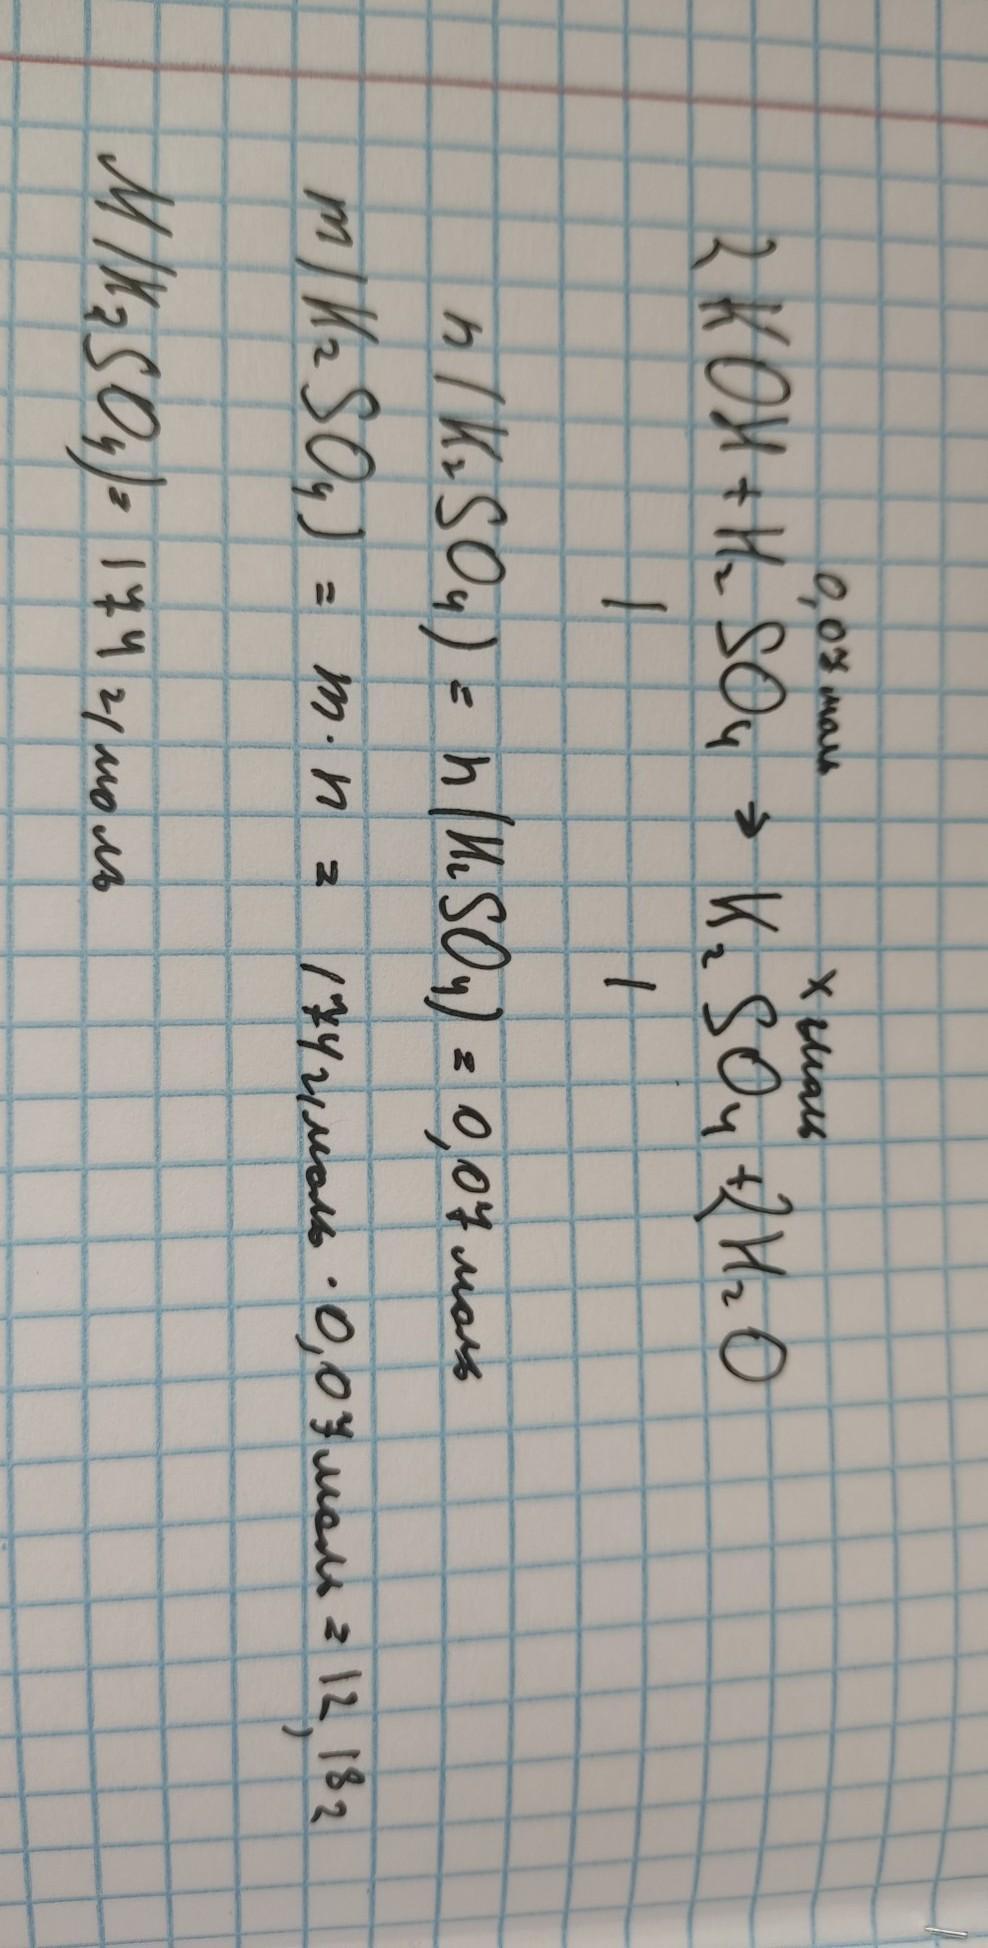 0,07 моль x моль
2KOH + H₂SO₄ → K₂SO₄ + 2H₂O
1 1
n(K₂SO₄) = n(H₂SO₄) = 0,07 моль
m(K₂SO₄) = m · n = 174 г/моль · 0,07 моль = 12,18 г
M(K₂SO₄) = 174 г/моль